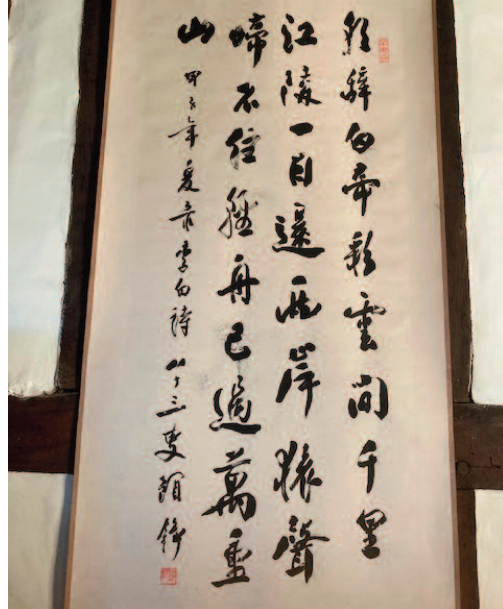 朝辭白帝彩雲間千里
江陵一日還兩岸猿聲
啼不住輕舟已過萬重
山
甲子年夏李白詩 八十三叟